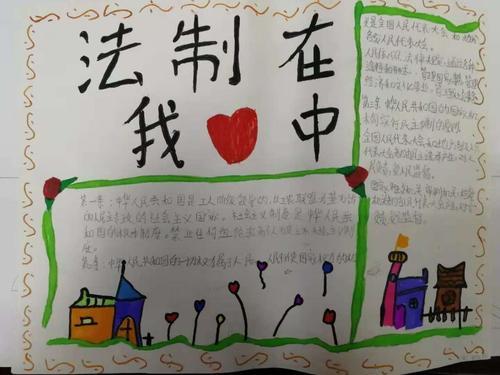 法制在
我中
是全国人民代表大会和地方
各级人民代表大会。
人民依照法律规定,通过各种
途径和形式,管理国家事务,管理
经济和文化事业,管理社会事务
第三条 中华人民共和国的国家机
构实行民主集中制的原则
全国人民代表大会和地方各级人
民代表大会都由民主选举产生,对人
民负责,受人民监督。
国家行政机关
第一章:中华人民共和国是工人阶级领导的,以工农联盟为基础
的人民民主专政的社会主义国家。社会主义制度是中华人民共
和国的根本制度。禁止任何组织或者个人破坏社会主义制
度。
第二条:中华人民共和国的一切权力属于人民 人民行使国家权力的机